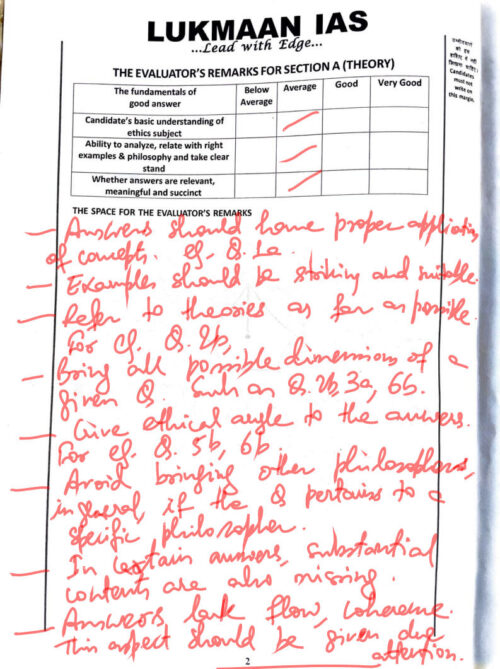 LUKMAAN IAS
...Lead with Edge...
उम्मीदवारों
को इस
हाशिए में नहीं
लिखना चाहिए।
Candidates
must not
write on
this margin.
THE EVALUATOR'S REMARKS FOR SECTION A (THEORY)
The fundamentals of good answer | Below Average | Average | Good | Very Good
Candidate's basic understanding of ethics subject
Ability to analyze, relate with right examples & philosophy and take clear stand
Whether answers are relevant, meaningful and succinct
THE SPACE FOR THE EVALUATOR'S REMARKS
– Answers should have proper application
of concepts. eg. Q. 1a.
– Examples should be striking and suitable.
– Refer to theories as far as possible.
For eg. Q. 2b,
– Bring all possible dimensions of a
given Q. Such as Q. 2b, 3a, 6b.
– Give ethical angle to the answers.
For eg. Q. 5b, 6b.
– Avoid bringing other philosophers,
in general, if the Q pertains to a
specific philosopher.
– In certain answers, substantial
contents are also missing.
– Answers lack flow, coherence.
This aspect should be given due
attention.
2